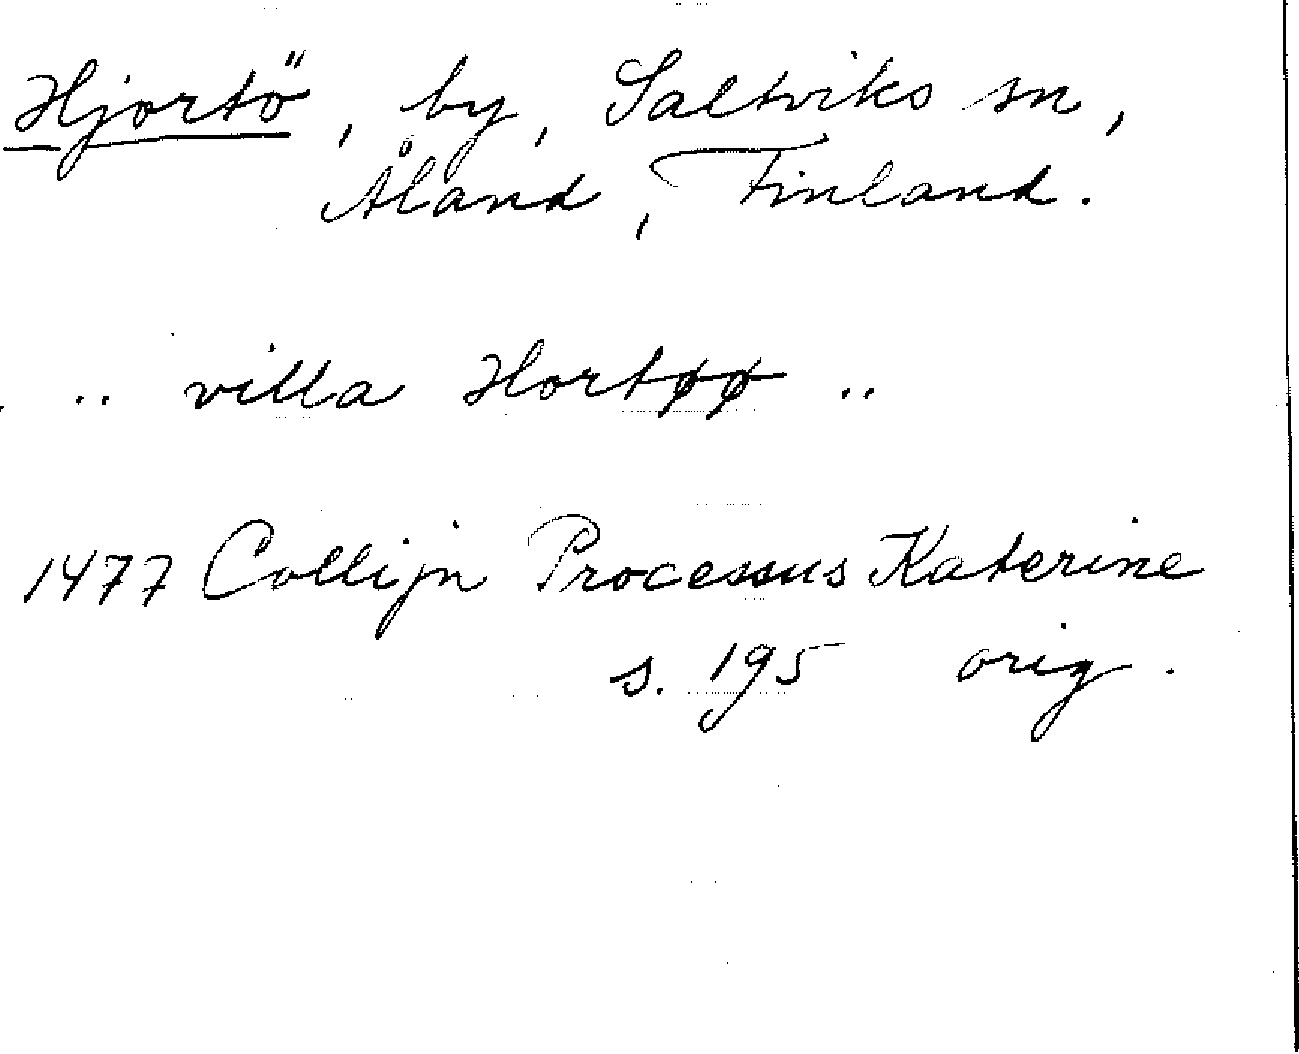 Hjortö, by, Saltviks sn,
Åland, Finland.
.. villa Hortøø ..
1477 Collijn Processus Katerine
s. 195 orig.